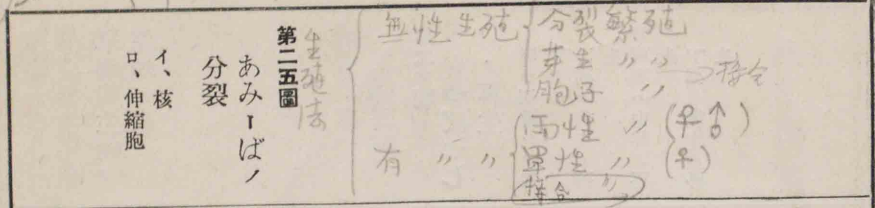 第二五圖
あみーばノ
分裂
イ、核
ロ、伸縮胞
生殖法
無性生殖
分裂繁殖
芽生 〃 〃
胞子 〃
接合
有 〃 〃
両性 〃 (♀♂)
単性 〃 (♀)
接合 〃